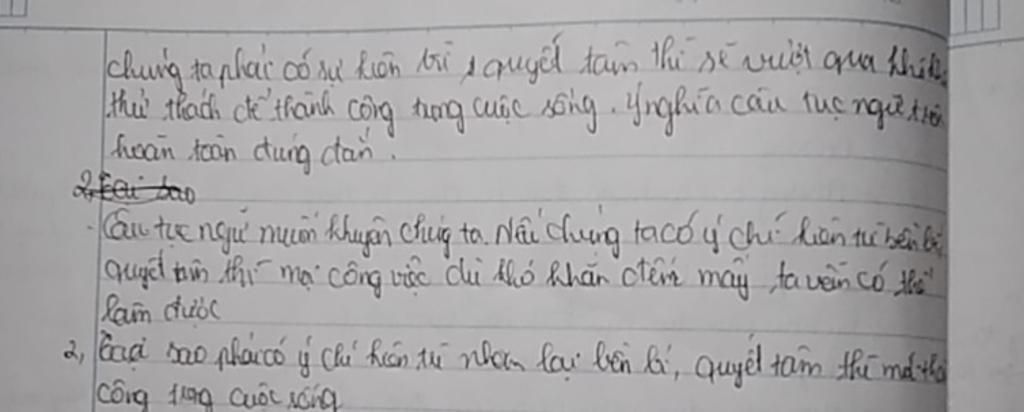 chúng ta phải có sự kiên trì, quyết tâm thì sẽ vượt qua khó
thử thách để thành công trong cuộc sống. Ý nghĩa câu tục ngữ trên
hoàn toàn đúng đắn.
2, Tại sao
- Câu tục ngữ muốn khuyên chúng ta. Nếu chúng ta có ý chí kiên trì bền bỉ
quyết tâm thì mọi công việc dù khó khăn đến mấy, ta vẫn có thể
làm được
2, Tại sao phải có ý chí kiên trì nhẫn lại bền bỉ, quyết tâm thì mới
công trong cuộc sống